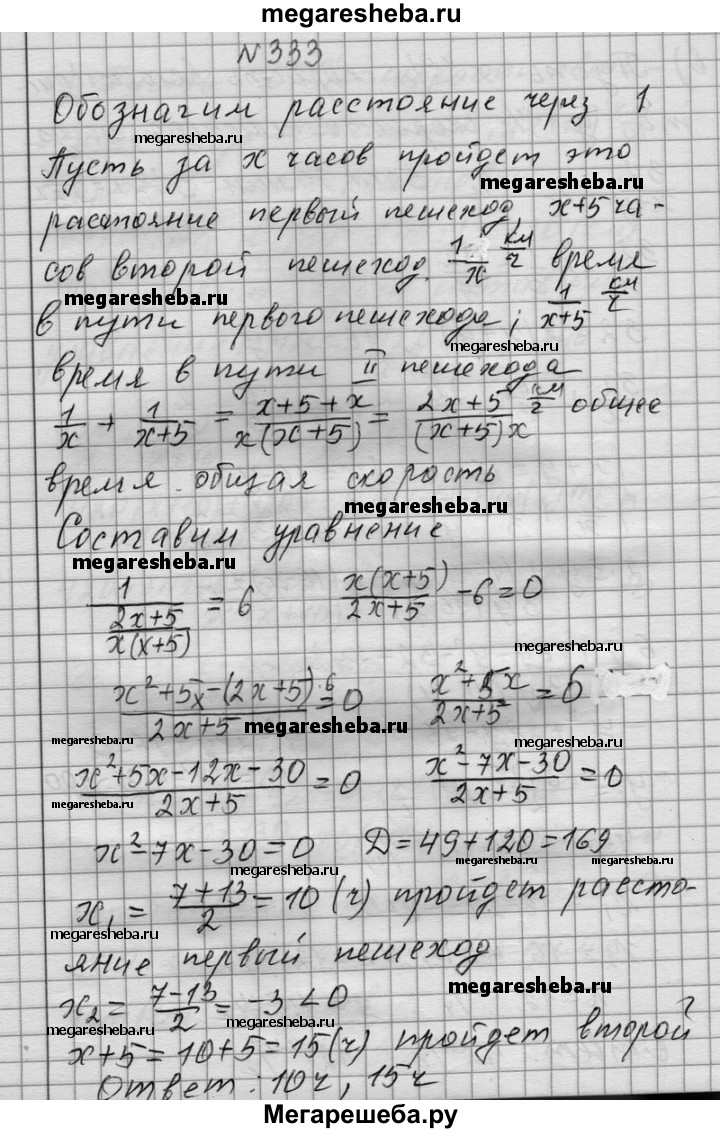 megaresheba.ru
N333
Обозначим расстояние через 1
megaresheba.ru
Пусть за x часов пройдет это
megaresheba.ru
расстояние первый пешеход, x+5 ча-
сов второй пешеход. 1/x км/ч время
megaresheba.ru
в пути первого пешехода; 1/(x+5) км/ч
megaresheba.ru
время в пути II пешехода
1/x + 1/(x+5) = (x+5+x)/(x(x+5)) = (2x+5)/((x+5)x) км/ч общее
время. общая скорость
megaresheba.ru
Составим уравнение
megaresheba.ru
1/((2x+5)/(x(x+5))) = 6 x(x+5)/(2x+5) - 6 = 0
megaresheba.ru
(x²+5x-(2x+5)·6)/(2x+5) = 0 (x²+5x)/(2x+5) = 6
megaresheba.ru megaresheba.ru megaresheba.ru
(x²+5x-12x-30)/(2x+5) = 0 (x²-7x-30)/(2x+5) = 0
megaresheba.ru
x²-7x-30=0 D=49+120=169
megaresheba.ru megaresheba.ru
x₁ = (7+13)/2 = 10 (ч) пройдет рассто-
megaresheba.ru
яние первый пешеход
megaresheba.ru
x₂ = (7-13)/2 = -3 < 0
megaresheba.ru megaresheba.ru
x+5=10+5=15(ч) пройдет второй
megaresheba.ru
Ответ: 10ч, 15ч
Мегарешеба.ру